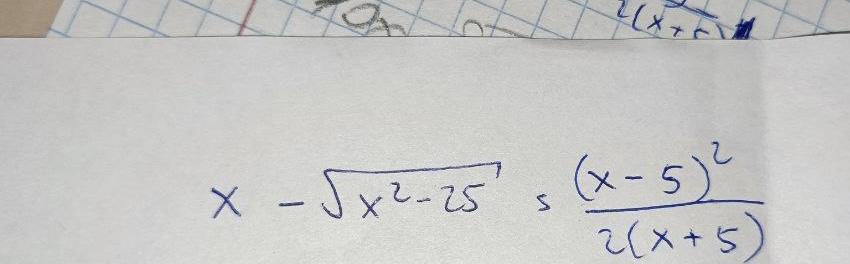 2(x+5)
x - √(x²-25) = (x-5)² / 2(x+5)